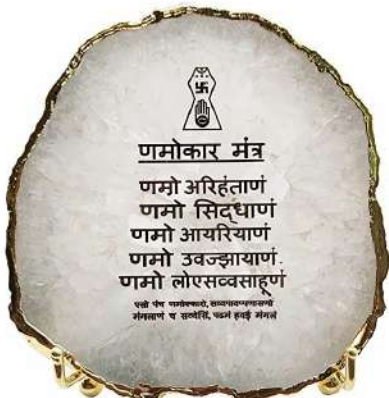 णमोकार मंत्र
णमो अरिहंताणं
णमो सिद्धाणं
णमो आयरियाणं
णमो उवज्झायाणं.
णमो लोएसव्वसाहूणं
एसो पंच णमोक्कारो, सव्वपावप्पणासणो
मंगलाणं च सव्वेसिं, पढमं हवई मंगलं